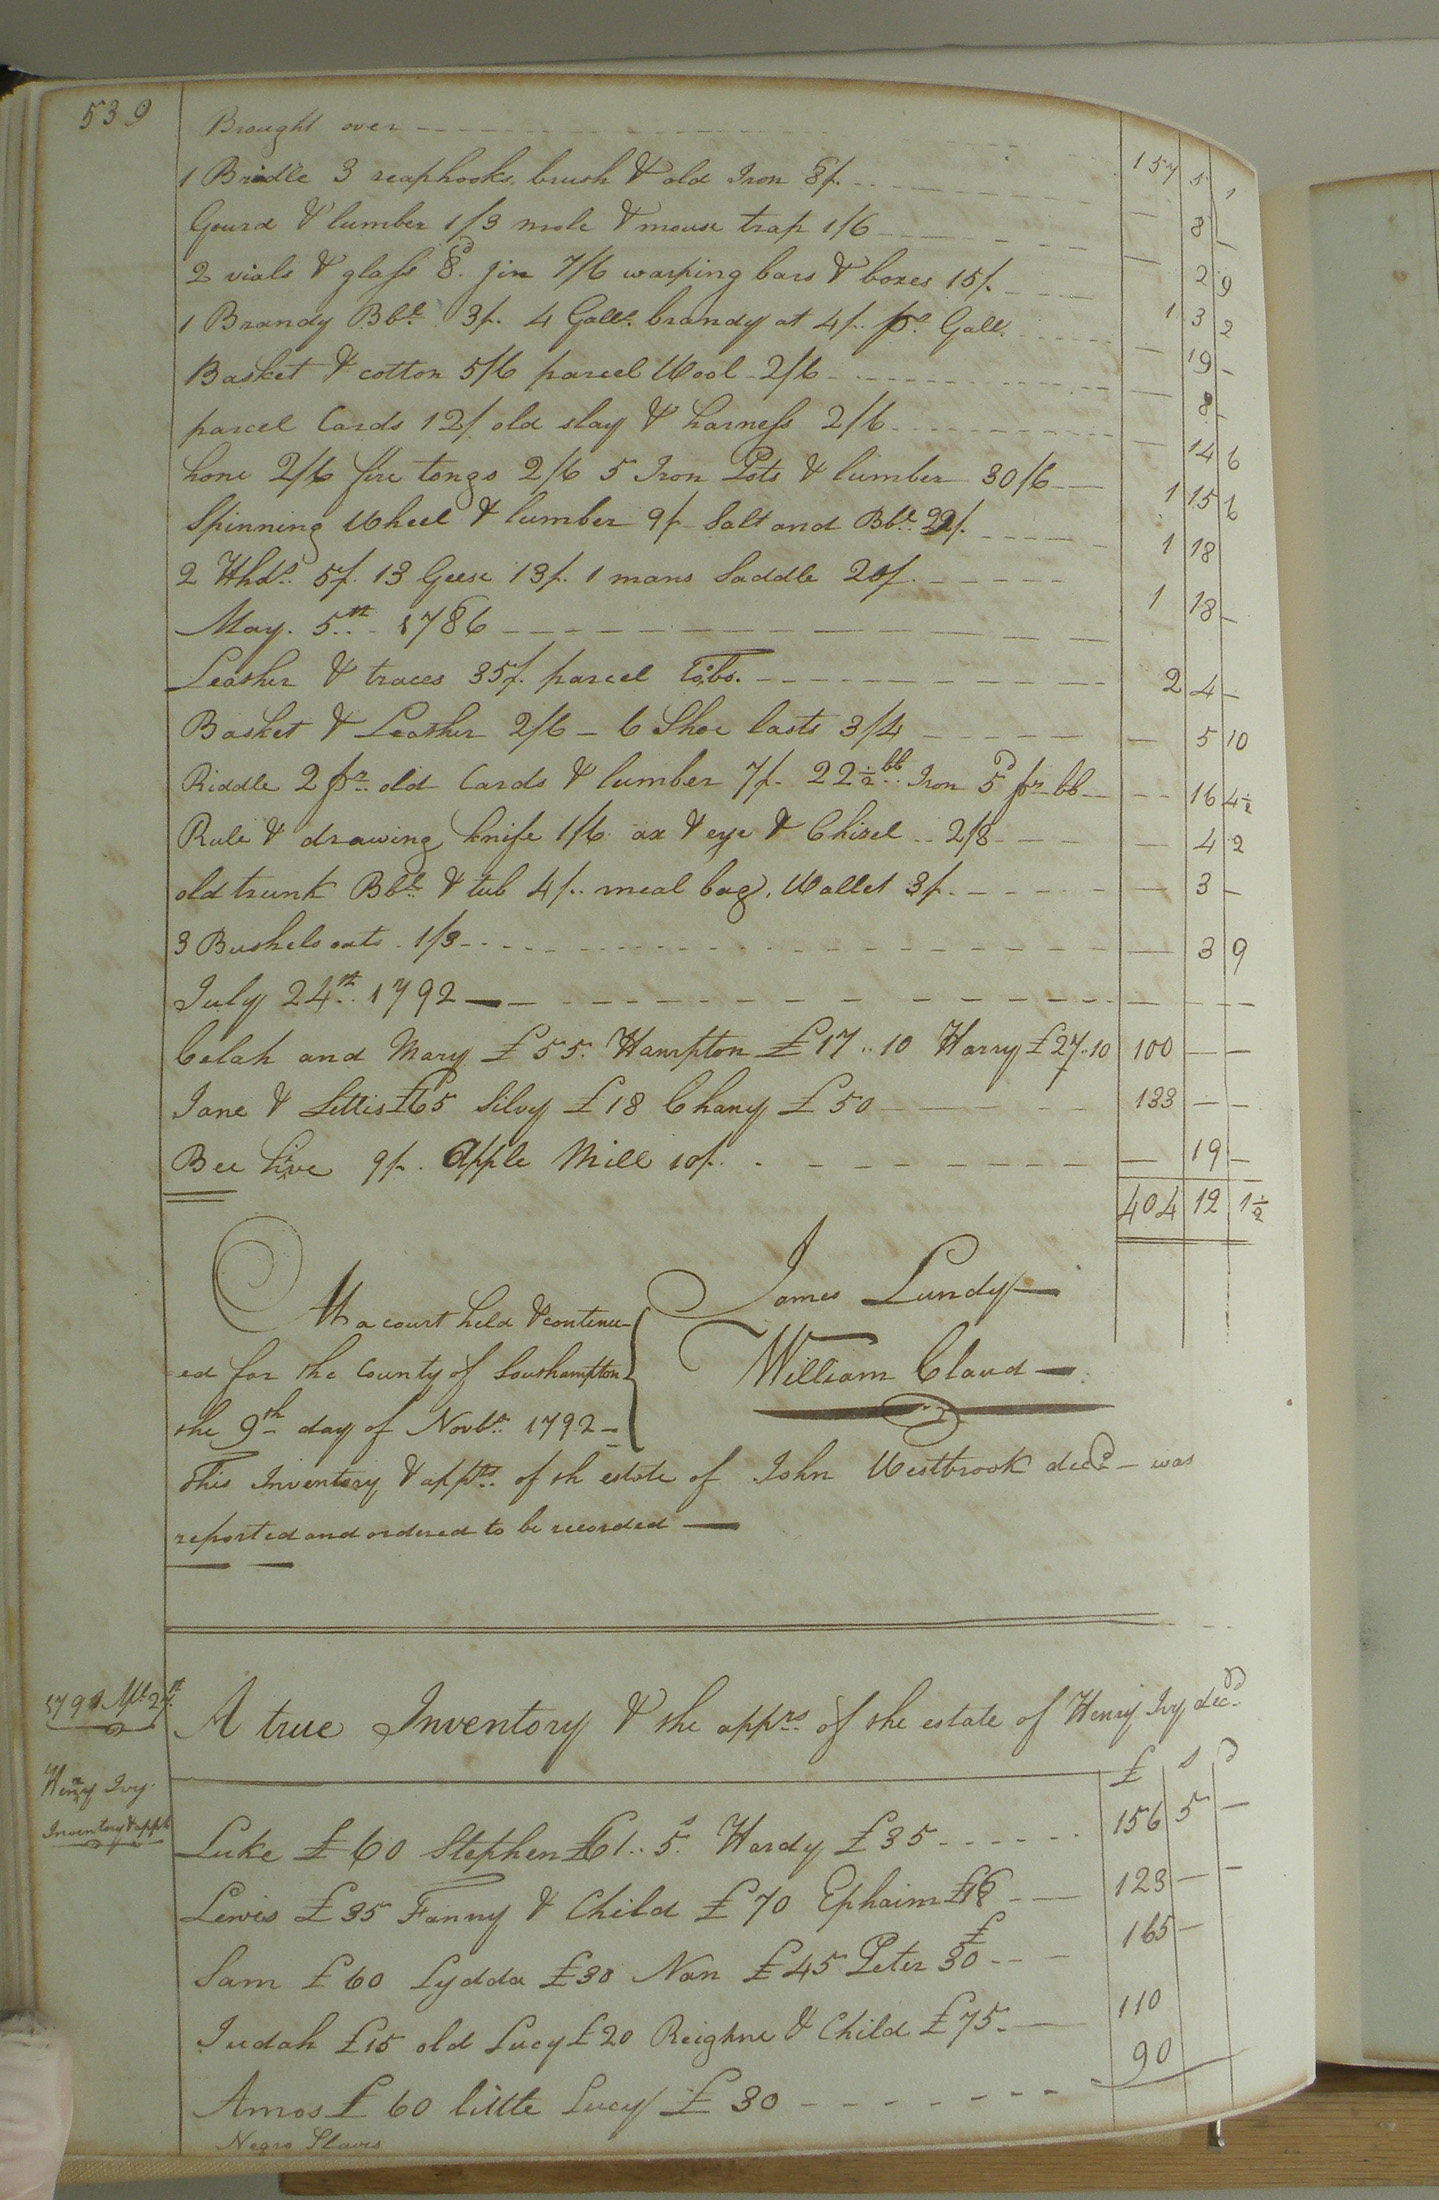 539
Brought over 157 5 1
1 Bridle 3 reaphooks, brush & old Iron 8/. — 8 —
Gourd & lumber 1/3 mole & mouse trap 1/6 — 2 9
2 vials & glass 8d. Jin 7/6 warping bars & boxes 15/. 1 3 2
1 Brandy Bbl. 3/. 4 Galls. brandy at 4/. pr Gall. — 19 —
Basket & cotton 5/6 parcel Wool 2/6 — 8 —
parcel Cards 12/. old slay & harness 2/6 — 14 6
hone 2/6 fire tongs 2/6 5 Iron Pots & lumber 30/6 1 15 6
Spinning Wheel & lumber 9/. Salt and Bbl. 29/. 1 18
2 Hhds. 5/. 13 Geese 13/. 1 mans Saddle 20/. 1 18 —
May. 5th. 1786
Leather & traces 35/. parcel 2 4 —
Basket & Leather 2/6 — 6 Shoe lasts 3/4 — 5 10
Riddle 2 pr. old Cards & lumber 7/. 22½ lb Iron 5d pr lb — 16 4½
Rule & drawing knife 1/6 ax & eye & Chisel .. 2/8 — 4 2
old trunk Bbl. & tub 4/. meal bag, Wallet 3/. — 3 —
3 Bushels oats . 1/3 — 3 9
July 24th. 1792 — — —
Celah and Mary £55. Hampton £17..10 Harry £27..10 100 — —
Jane & Lettis £65 Silvy £18 Chany £50 133 — —
Bee hive 9/. Apple Mill 10/. — 19 —
404 12 1½
James Lundy
William Claud
At a court held & continu-
ed for the County of Southampton
the 9th day of Novbr. 1792
This Inventory & appts. of th estate of John Westbrook decd — was
reported and ordered to be recorded
1791 Apl 27th
A true Inventory & the apprs. of the estate of Henry Ivy decd
Henry Ivy.
Inventory & appt
£ s d
Luke £60 Stephen £61..5s Hardy £35 156 5 —
Lewis £35 Fanny & Child £70 Ephaim £18 123 — —
Sam £60 Lydda £30 Nan £45 Peter £30 165 —
Judah £15 old Lucy £20 Reighne & Child £75 110
Amos £60 little Lucy £30 90
Negro Slaves